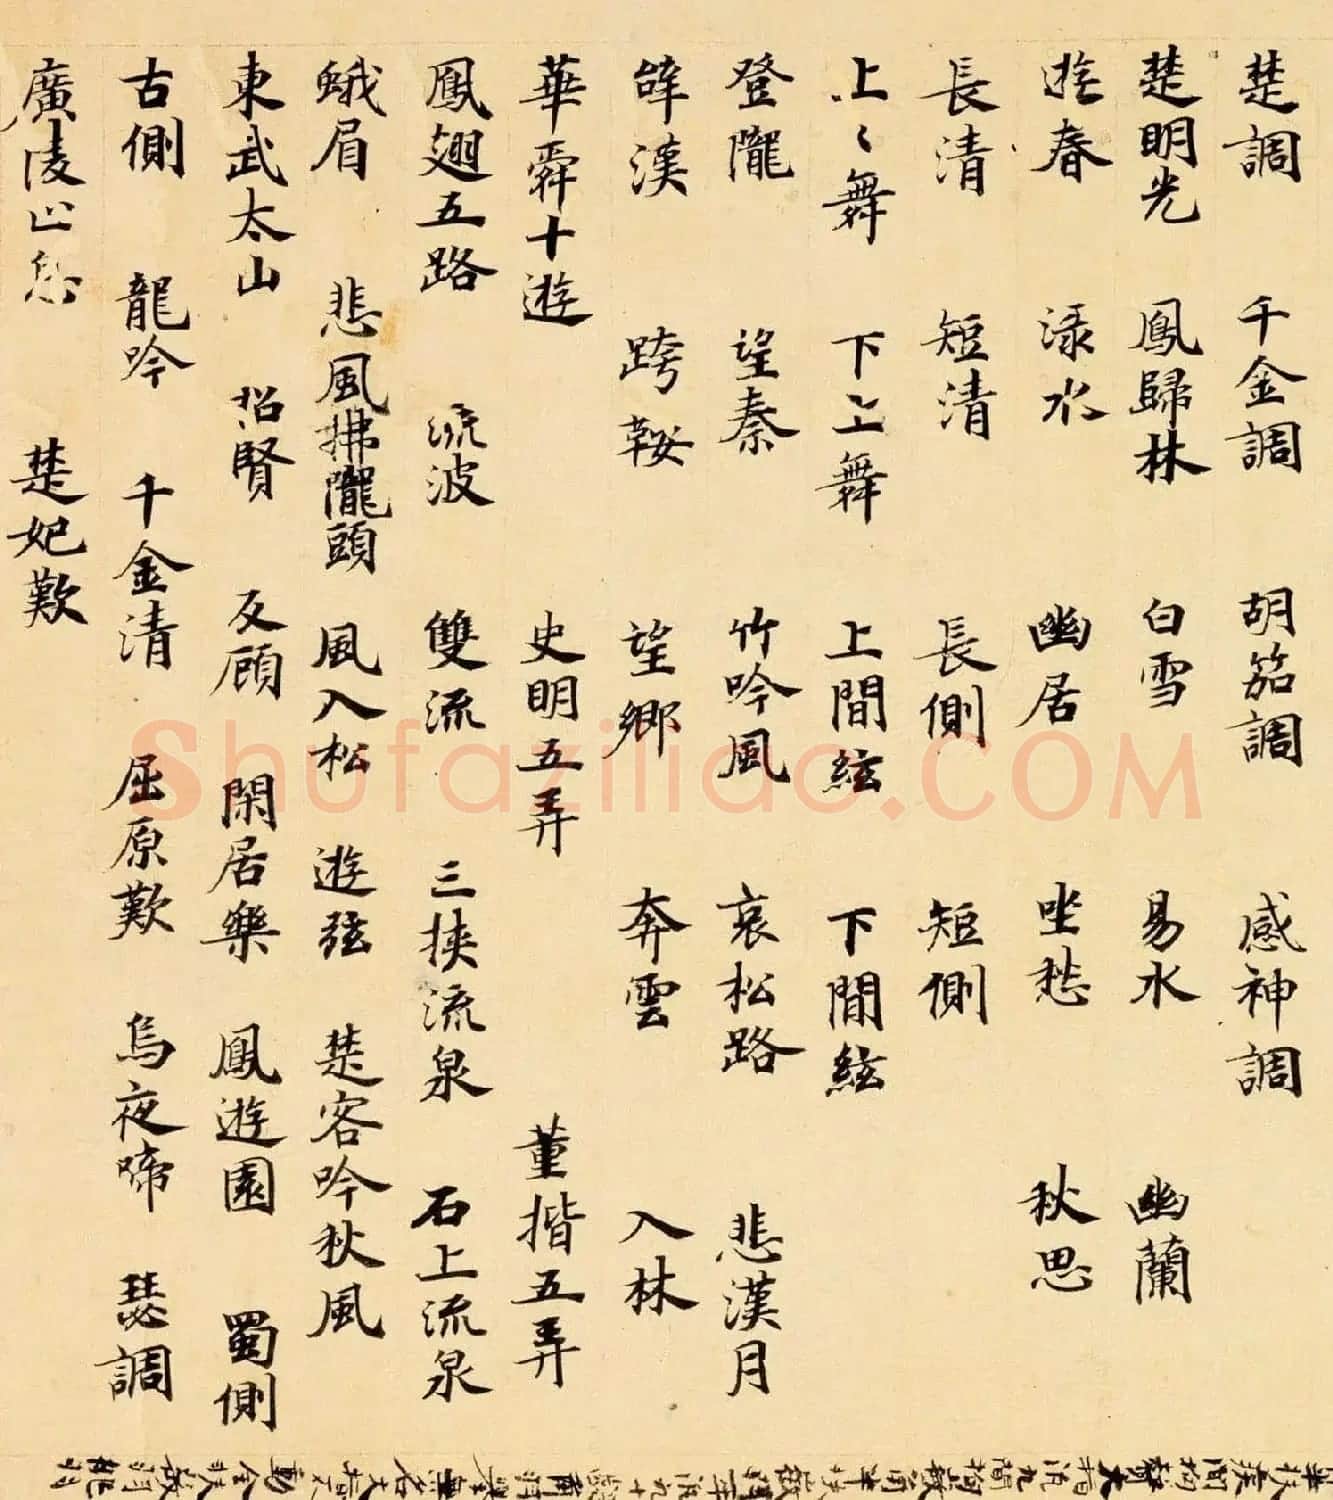 楚調 千金調 胡笳調 感神調
楚明光 鳳歸林 白雪 易水 幽蘭
遊春 淥水 幽居 坐愁 秋思
長清 短清 長側 短側
上〻舞 下上舞 上間絃 下間絃
登隴 望秦 竹吟風 哀松路 悲漢月
辞漢 跨鞍 望鄉 奔雲 入林
華舜十遊 史明五弄 董揩五弄
鳳翅五路 流波 雙流 三挾流泉 石上流泉
蛾眉 悲風拂隴頭 風入松 遊弦 楚客吟秋風
東武太山 招賢 反顧 閑居樂 鳳遊園 蜀側
古側 龍吟 千金清 屈原歎 烏夜啼 瑟調
廣陵止息 楚妃歎
Shufaziliao.COM